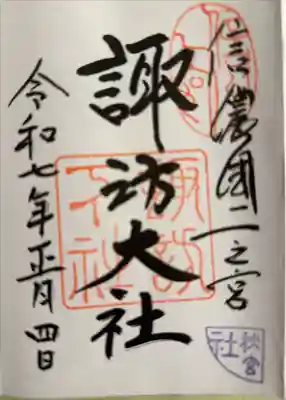 信濃國一之宮
諏訪大社
諏訪
下社
令和七年正月四日
秋宮
社